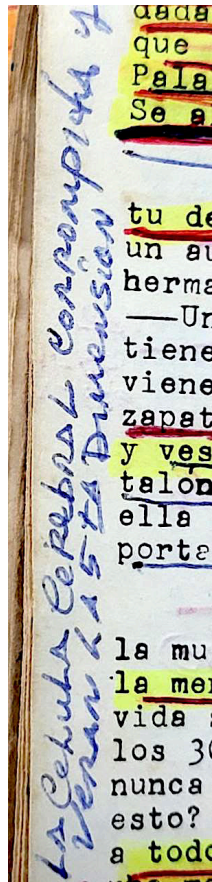 La Celula Cerebral Corrompida y
Veran LA 5TA Dimension
dada
que
Pala
Se a
tu de
un au
herma
—Un
tiene
viene
zapat
y ves
talón
ella
porta
la mu
la men
vida
los 30
nunca
esto?
a todo